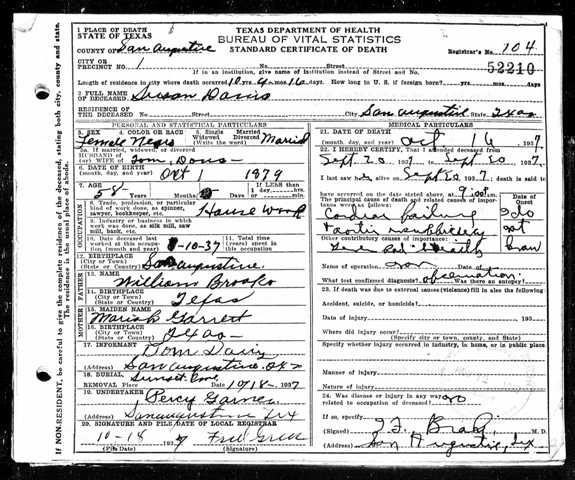 1 PLACE OF DEATH
STATE OF TEXAS
TEXAS DEPARTMENT OF HEALTH
BUREAU OF VITAL STATISTICS
STANDARD CERTIFICATE OF DEATH
COUNTY OF San Augustine
Registrar's No. 104
CITY OR PRECINCT NO. 1 No. Street
If in an institution, give name of institution instead of Street and No.
52210
Length of residence in city where death occurred yrs. mos. days. How long in U. S. if foreign born? yrs. mos. days
2 FULL NAME OF DECEASED Susan Davis
RESIDENCE OF THE DECEASED No. Street City San Augustine State Texas
PERSONAL AND STATISTICAL PARTICULARS
3. SEX Female
4. COLOR OR RACE Negro
5. Single Married Widowed Divorced (Write the word) Married
5a. If married, widowed, or divorced
HUSBAND OF (or) WIFE OF Tom Davis
6. DATE OF BIRTH (month, day, and year) Oct 1 1879
7. AGE Years 58 Months Days If LESS than 1 day hrs. min.
OCCUPATION
8. Trade, profession, or particular kind of work done, as spinner, sawyer, bookkeeper, etc. House Work
9. Industry or business in which work was done, as silk mill, saw mill, bank, etc.
10. Date deceased last worked at this occupation (month and year) 8-10-37
11. Total time (years) spent in this occupation
12. BIRTHPLACE (City or Town) (State or Country) San Augustine
FATHER
13. NAME William Brooks
14. BIRTHPLACE (City or Town) (State or Country) Texas
MOTHER
15. MAIDEN NAME Mariah Garrett
16. BIRTHPLACE (City or Town) (State or Country) Texas
17. INFORMANT Tom Davis
Address San Augustine
18. BURIAL, REMOVAL Place Sunset Date 10-18-1937
19. UNDERTAKER Percy Garner
Address San augustine Tex
20. SIGNATURE AND FILE DATE OF LOCAL REGISTRAR
10-18 1937
(File Date) (Signature)
MEDICAL PARTICULARS
21. DATE OF DEATH (month, day, and year) Oct 16 1937
22. I HEREBY CERTIFY, That I attended deceased from
Sept. 20 1937 to Sept 20 1937
I last saw her alive on Sept 20 1937, death is said to
have occurred on the date stated above, at 9:00 P m.
The principal cause of death and related causes of importance were as follows:
Date of Onset
Cardiac failure
Other contributory causes of importance:
Name of operation Date of
What test confirmed diagnosis? Was there an autopsy?
23. If death was due to external causes (violence) fill in also the following
Accident, suicide, or homicide?
Date of injury 193
Where did injury occur?
(Specify city or town, county, and State)
Specify whether injury occurred in industry, in home, or in public place
Manner of injury
Nature of injury
24. Was disease or injury in any way related to occupation of deceased? no
If so, specify
(Signed) M. D.
(Address) San Augustine, Tex
If NON-RESIDENT, be Careful to give the complete residence of the deceased, stating both city, county and state. The residence is the usual place of abode.